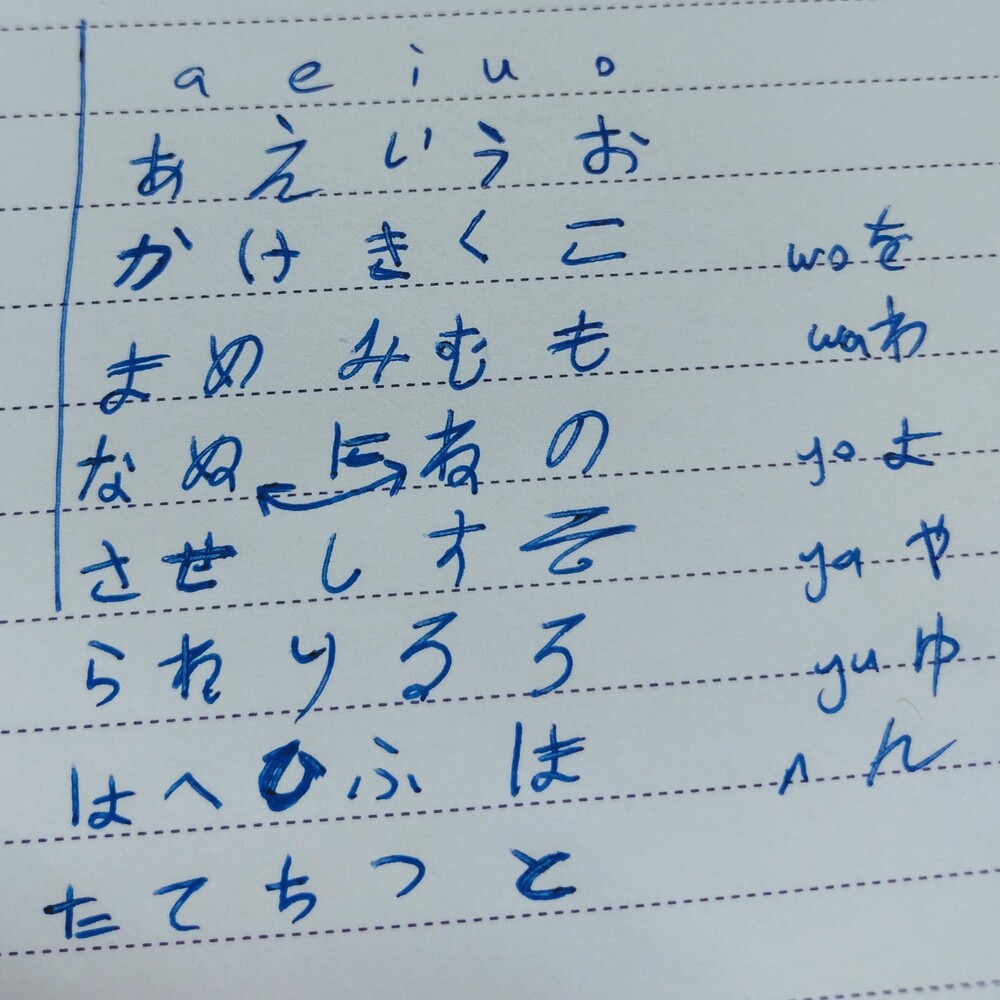 a e i u o
あ え い う お
か け き く こ wo を
ま め み む も wa わ
な ぬ に ね の yo よ
さ せ し す そ ya や
ら れ り る ろ yu ゆ
は へ ひ ふ ほ n ん
た て ち つ と